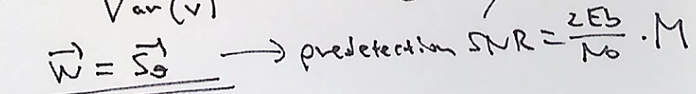 Var(v)
w⃗ = s⃗_θ → predetection SNR = 2Eb/No · M